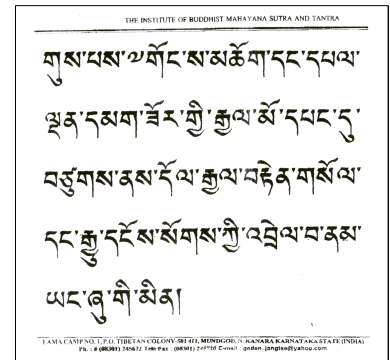 THE INSTITUTE OF BUDDHIST MAHAYANA SUTRA AND TANTRA
གུས་པས་༧གོང་ས་མཆོག་དང་དཔལ་
ལྡན་དམག་ཟོར་གྱི་རྒྱལ་མོ་དཔང་དུ་
བཙུགས་ནས་དོལ་རྒྱལ་བརྟེན་གསོལ་
དང་རྒྱུ་དངོས་སོགས་ཀྱི་འབྲེལ་བ་ནམ་
ཡང་ཞུ་གི་མིན།
LAMA CAMP NO. 1, P.O. TIBETAN COLONY-581 411, MUNDGOD, N. KANARA KARNATAKA STATE (INDIA)
Ph. : # (08301) 245672 Tele Fax : (08301) 245720 E-mail : gaden_jangtse@yahoo.com